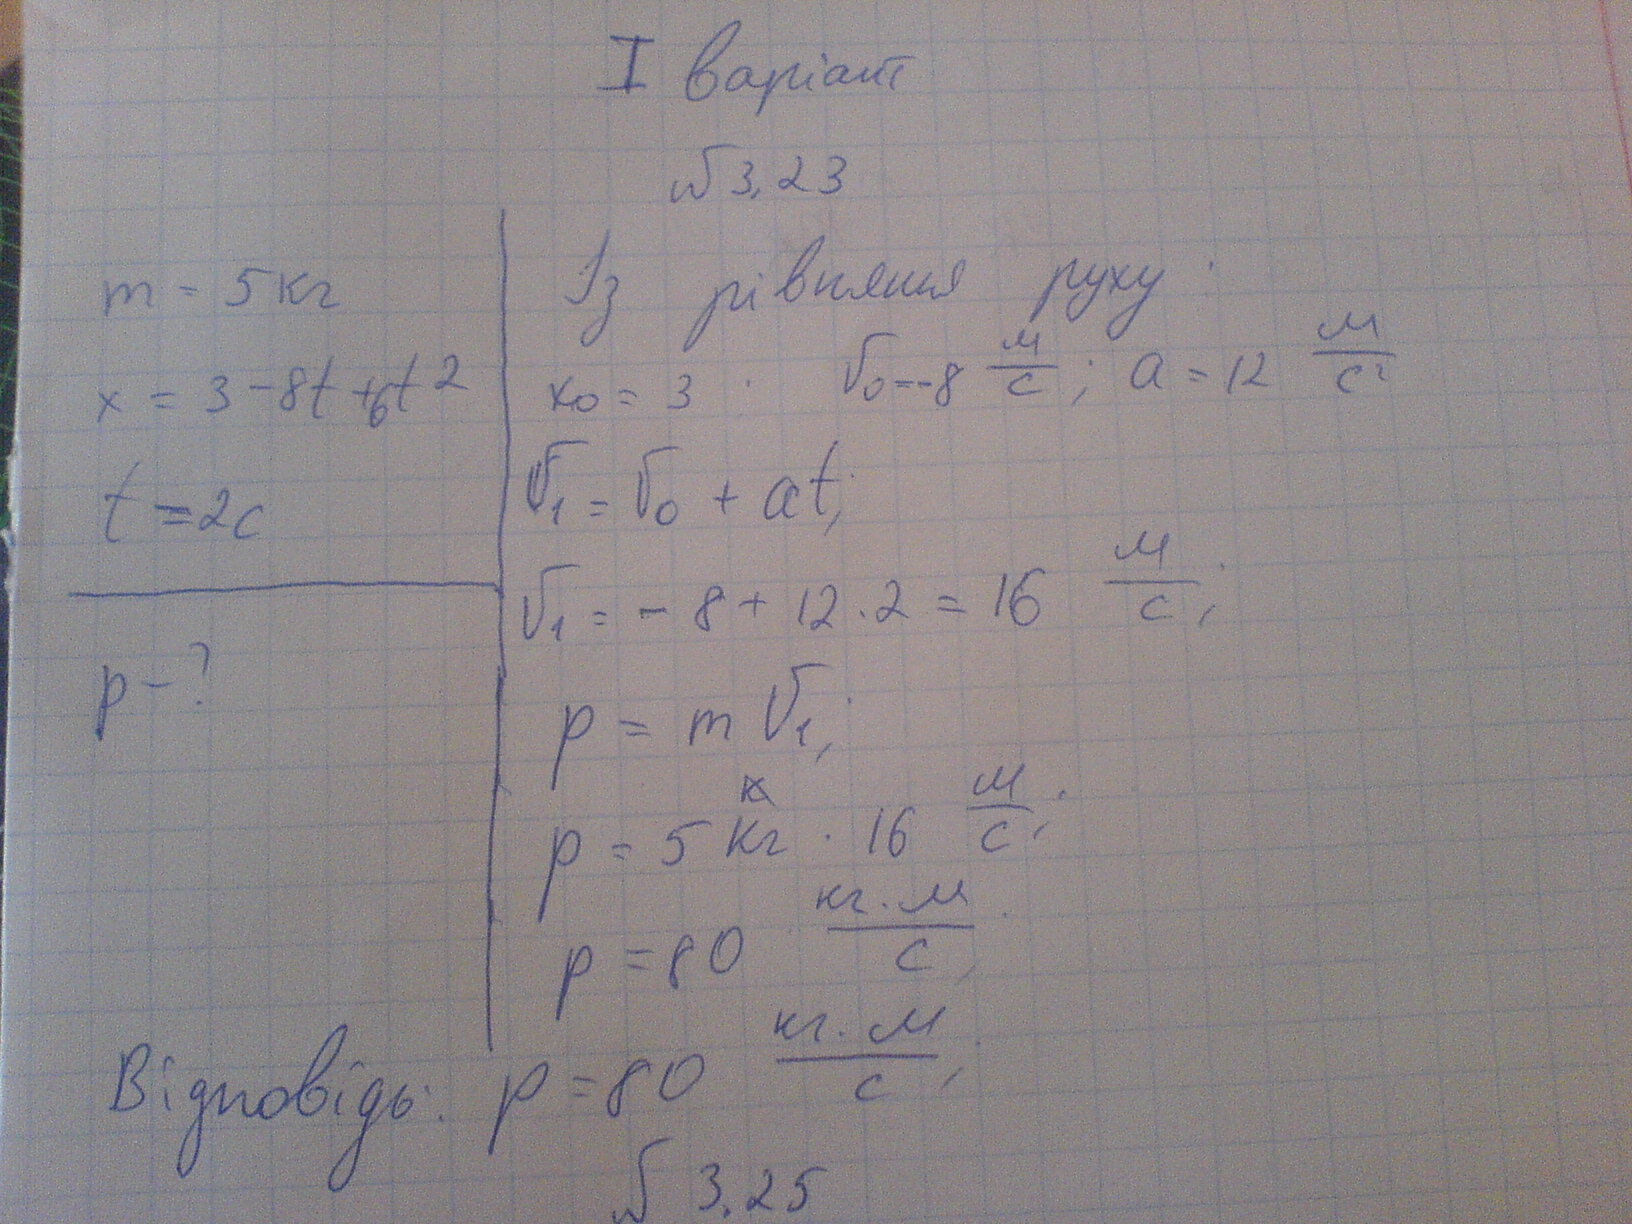 I варіант
№ 3.23
m = 5 кг
x = 3 - 8t + 6t²
t = 2c
p - ?
Із рівняння руху:
x₀ = 3 . v₀ = -8 м/с; a = 12 м/с²
v₁ = v₀ + at;
v₁ = - 8 + 12 · 2 = 16 м/с;
p = m v₁;
p = 5 кг · 16 м/с;
p = 80 кг·м/с;
Відповідь: p = 80 кг·м/с;
№ 3.25